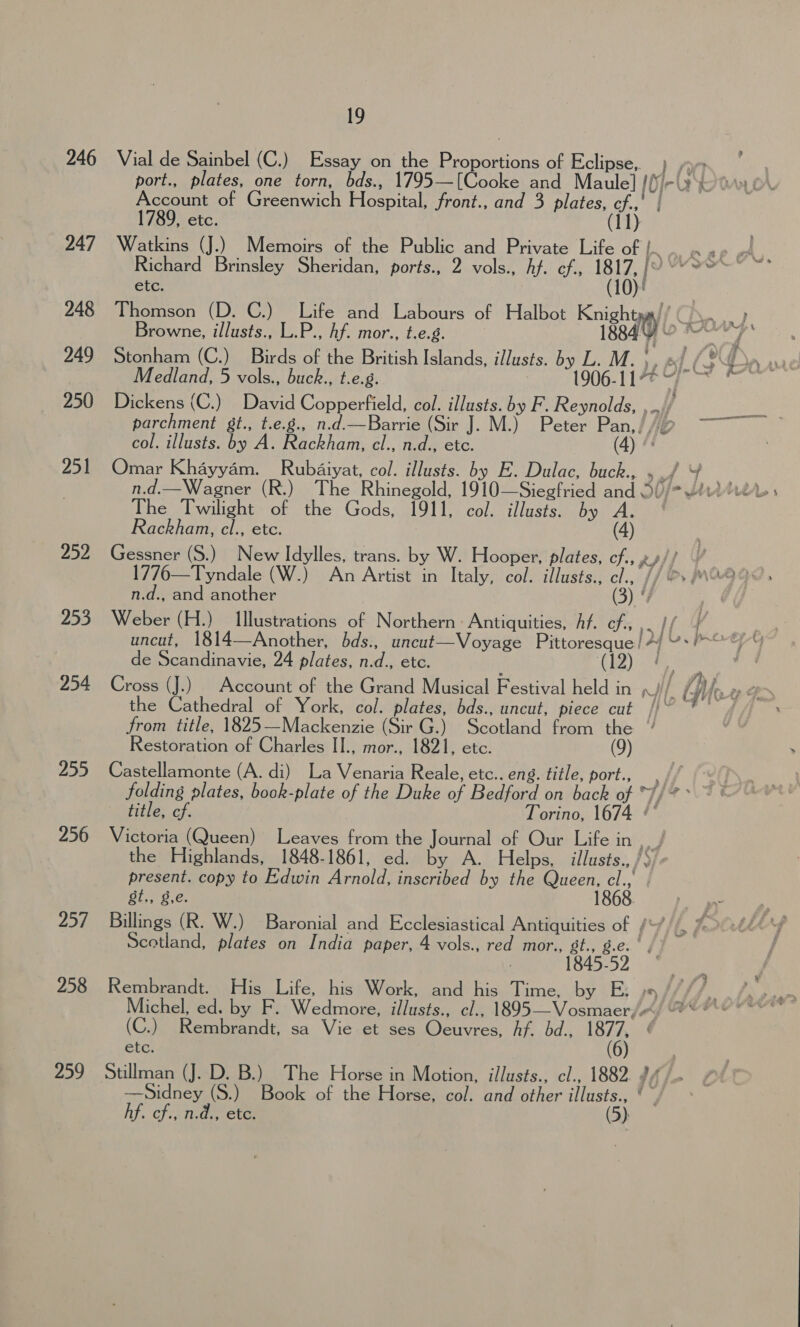 19
246 Vial de Sainbel (C.) Essay on the Proportions of Eclipse,
port., plates, one torn, bds., 1795—[Cooke and Maule]
Account of Greenwich Hospital, front., and 3 plates, cf.,
1789, etc. (11)
247 Watkins (J.) Memoirs of the Public and Private Life of
Richard Brinsley Sheridan, ports., 2 vols., hf. cf., 1817,
etc. (10)
248 Thomson (D. C.) Life and Labours of Halbot Knight
Browne, illusts., L.P., hf. mor., t.e.g. 1884
249 Stonham (C.) Birds of the British Islands, illusts. by L. M.
Medland, 5 vols., buck., t.e.g. 1906-11
250 Dickens (C.) David Copperfield, col. illusts. by F. Reynolds,
parchment gt., t.e.g., n.d.—Barrie (Sir J. M.) Peter Pan,
col. illusts. by A. Rackham, cl., n.d., etc. (4)
251 Omar Khàyyám. Rubáiyat, col. illusts. by E. Dulac, buck.,
n.d.—Wagner (R.) The Rhinegold, 1910—Siegfried and
The Twilight of the Gods, 1911, col. illusts. by A.
Rackham, cl., etc. (4)
252 Gessner (S.) New Idylles, trans. by W. Hooper, plates, cf.,
1776—Tyndale (W.) An Artist in Italy, col. illusts., cl.,
n.d., and another (3)
253 Weber (H.) Illustrations of Northern Antiquities, hf. cf.,
uncut, 1814—Another, bds., uncut—Voyage Pittoresque
de Scandinavie, 24 plates, n.d., etc. (12)
254 Cross (J.) Account of the Grand Musical Festival held in
the Cathedral of York, col. plates, bds., uncut, piece cut
from title, 1825—Mackenzie (Sir G.) Scotland from the
Restoration of Charles II., mor., 1821, etc. (9)
255 Castellamonte (A. di) La Venaria Reale, etc.. eng. title, port.,
folding plates, book-plate of the Duke of Bedford on back of
title, cf. Torino, 1674
256 Victoria (Queen) Leaves from the Journal of Our Life in
the Highlands, 1848-1861, ed. by A. Helps, illusts.,
present. copy to Edwin Arnold, inscribed by the Queen, cl.,
gt., g.e. 1868
257 Billings (R. W.) Baronial and Ecclesiastical Antiquities of
Scotland, plates on India paper, 4 vols., red mor., gt., g.e.
1845-52
258 Rembrandt. His Life, his Work, and his Time, by E.
Michel, ed. by F. Wedmore, illusts., cl., 1895—Vosmaer
(C.) Rembrandt, sa Vie et ses Oeuvres, hf. bd., 1877,
etc. (6)
259 Stillman (J. D. B.) The Horse in Motion, illusts., cl., 1882
—Sidney (S.) Book of the Horse, col. and other illusts.,
hf. cf., n.d., etc. (5)